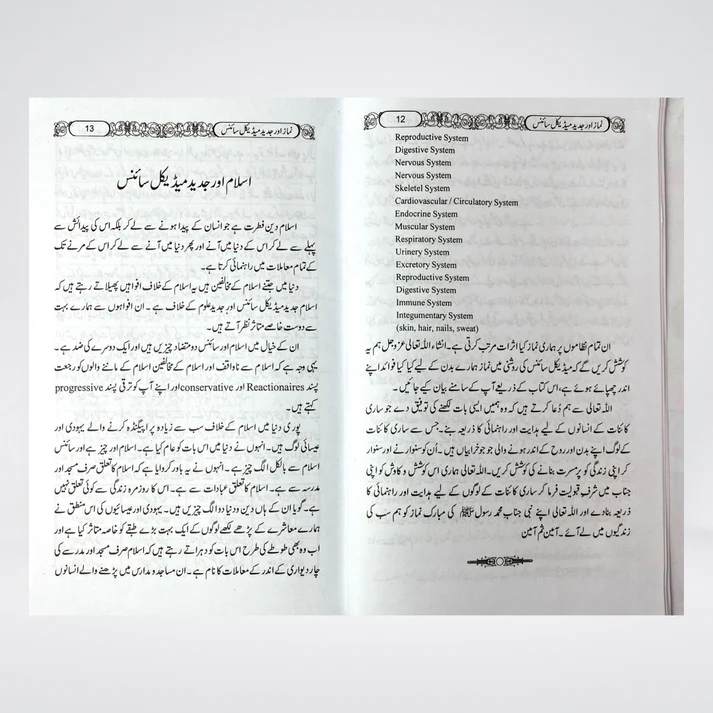 نماز اور جدید میڈیکل سائنس
12
Reproductive System
Digestive System
Nervous System
Nervous System
Skeletel System
Cardiovascular / Circulatory System
Endocrine System
Muscular System
Respiratory System
Urinery System
Excretory System
Reproductive System
Digestive System
Immune System
Integumentary System
(skin, hair, nails, sweat)
ان تمام نظاموں پر ہماری نماز کیا اثرات مرتب کرتی ہے۔ انشاءاللہ تعالیٰ عزوجل ہم یہ
کوشش کریں گے کہ میڈیکل سائنس کی روشنی میں نماز ہمارے بدن کے لیے کیا کیا فوائد اپنے
اندر چھپائے ہوئے ہے، اس کتاب کے ذریعے آپ کے سامنے بیان کیے جائیں۔
اللہ تعالیٰ سے ہم دُعا کرتے ہیں کہ وہ ہمیں ایسی بات لکھنے کی توفیق دے جو ساری
کائنات کے انسانوں کے لیے ہدایت اور راہنمائی کا ذریعہ بنے۔ جس سے ساری کائنات
کے لوگ اپنے بدن اور روح کے اندر ہونے والی جو جو خرابیاں ہیں۔ اُن کو سنوارنے اور سنوار
کر اپنی زندگی کو پرمسرت بنانے کی کوشش کریں۔ اللہ تعالیٰ ہماری اس کوشش و کاوش کو اپنی
جناب میں شرفِ قبولیت فرما کر ساری کائنات کے لوگوں کے لیے ہدایت اور راہنمائی کا
ذریعہ بنا دے اور اللہ تعالیٰ اپنے نبی جناب محمد رسول ﷺ کی مبارک نماز کو ہم سب کی
زندگیوں میں لے آئے۔ آمین ثم آمین
نماز اور جدید میڈیکل سائنس
13
اسلام اور جدید میڈیکل سائنس
اسلام دین فطرت ہے جو انسان کے پیدا ہونے سے لے کر بلکہ اس کی پیدائش سے
پہلے سے لے کر اس کے دنیا میں آنے اور پھر دنیا میں آنے سے لے کر اس کے مرنے تک
کے تمام معاملات میں راہنمائی کرتا ہے۔
دنیا میں جتنے اسلام کے مخالفین ہیں یہ اسلام کے خلاف افواہیں پھیلاتے رہتے ہیں کہ
اسلام جدید میڈیکل سائنس اور جدید علوم کے خلاف ہے۔ ان افواہوں سے ہمارے بہت
سے دوست خاصے متاثر نظر آتے ہیں۔
ان کے خیال میں اسلام اور سائنس دو متضاد چیزیں ہیں اور ایک دوسرے کی ضد ہے۔
یہی وجہ ہے کہ اسلام سے ناواقف اور اسلام کے مخالفین اسلام کے ماننے والوں کو رجعت
پسند Reactionaires اور conservative اور اپنے آپ کو ترقی پسند progressive
کہتے ہیں۔
پوری دنیا میں اسلام کے خلاف سب سے زیادہ پراپیگنڈہ کرنے والے یہودی اور
عیسائی لوگ ہیں۔ انہوں نے دنیا میں اس بات کو عام کیا ہے۔ اسلام اور چیز ہے اور سائنس
اسلام سے بالکل الگ چیز ہے۔ انہوں نے یہ باور کروایا ہے کہ اسلام کا تعلق صرف مسجد اور
مدرسہ سے ہے۔ اسلام کا تعلق عبادات سے ہے۔ اس کا روزمرہ زندگی سے کوئی تعلق نہیں
ہے۔ گویا ان کے ہاں دین و دنیا دو الگ چیزیں ہیں۔ یہودی اور عیسائیوں کی اس منطق نے
ہمارے معاشرے کے پڑھے لکھے لوگوں کے ایک بہت بڑے طبقے کو خاصہ متاثر کیا ہے اور
اب وہ بھی طوطے کی طرح اس بات کو دہراتے رہتے ہیں کہ اسلام صرف مسجد اور مدرسے کی
چار دیواری کے اندر کے معاملات کا نام ہے۔ ان مساجد و مدارس میں پڑھنے والے انسانوں